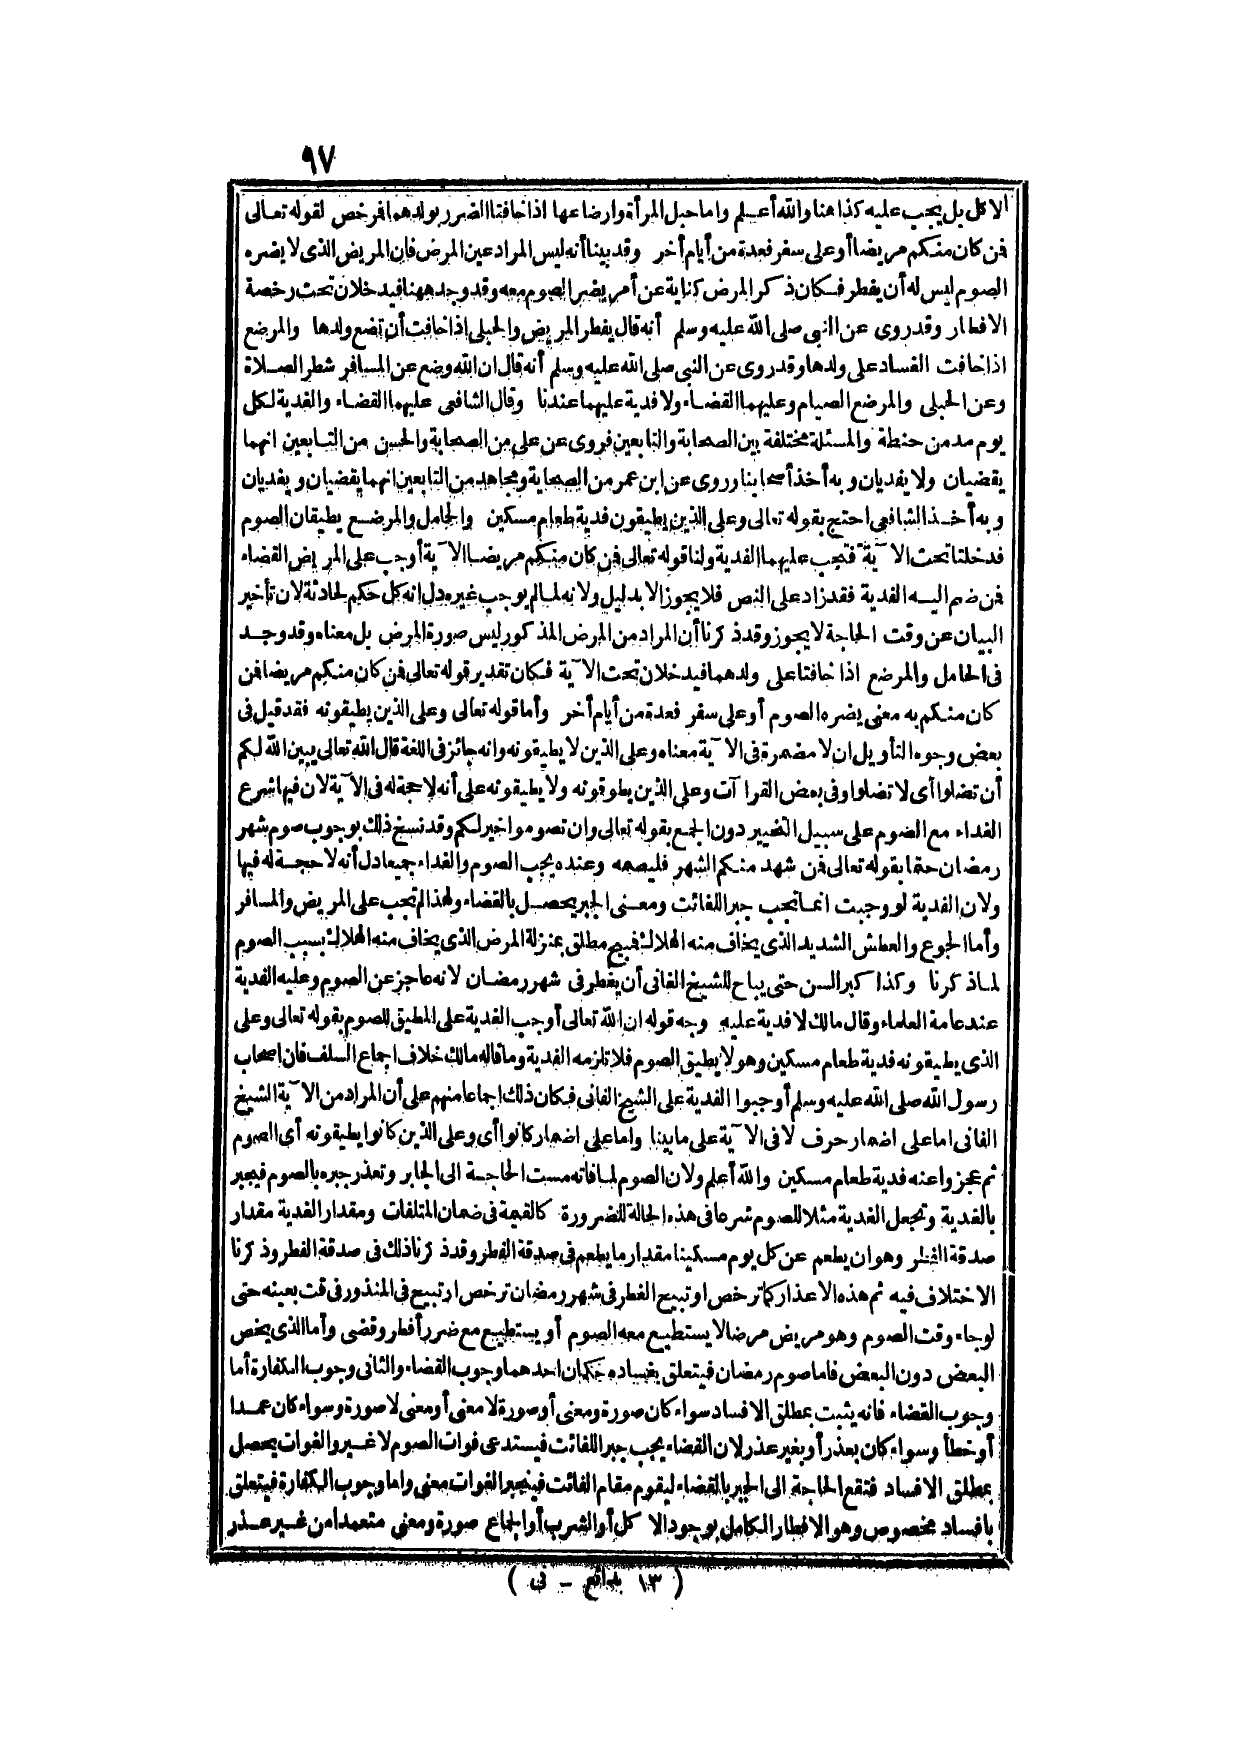 ٩٧
الاكل بل يجب عليه كذا هنا والله أعلم وأما حبل المرأة وارضاعها اذا خافتا الضرر بولدهما فرخص لقوله تعالى
فمن كان منكم مريضا أو على سفر فعدة من أيام أخر وقد بينا أنه ليس المراد عين المرض فان المريض الذى لا يضره
الصوم ليس له أن يفطر فكان ذكر المرض كناية عن أمر يضر الصوم معه وقد وجد ههنا فيدخلان تحت رخصة
الافطار وقد روى عن النبى صلى الله عليه وسلم أنه قال يفطر المريض والحبلى اذا خافت أن تضع ولدها والمرضع
اذا خافت الفساد على ولدها وقد روى عن النبى صلى الله عليه وسلم أنه قال ان الله وضع عن المسافر شطر الصلاة
وعن الحبلى والمرضع الصيام وعليهما القضاء ولا فدية عليهما عندنا وقال الشافعى عليهما القضاء والفدية لكل
يوم مد من حنطة والمسئلة مختلفة بين الصحابة والتابعين فروى عن على من الصحابة والحسن من التابعين انهما
يقضيان ولا يفديان وبه أخذ أصحابنا وروى عن ابن عمر من الصحابة ومجاهد من التابعين انهما يقضيان ويفديان
وبه أخذ الشافعى احتج بقوله تعالى وعلى الذين يطيقون فدية طعام مسكين والحامل والمرضع يطيقان الصوم
فدخلتا تحت الآية فتجب عليهما الفدية ولنا قوله تعالى فمن كان منكم مريضا الآية أوجب على المريض القضاء
فمن ضم اليه الفدية فقد زاد على النص فلا يجوز الا بدليل ولانه لما لم يوجب غيره دل انه كل حكم لحادثة لان تأخير
البيان عن وقت الحاجة لا يجوز وقد ذكرنا أن المراد من المرض المذكور ليس صورة المرض بل معناه وقد وجد
فى الحامل والمرضع اذا خافتا على ولدهما فيدخلان تحت الآية فكان تقدير قوله تعالى فمن كان منكم مريضا فمن
كان منكم به معنى يضره الصوم أو على سفر فعدة من أيام أخر وأما قوله تعالى وعلى الذين يطيقونه فقد قيل فى
بعض وجوه التأويل ان لا مضمرة فى الآية معناه وعلى الذين لا يطيقونه وانه جائز فى اللغة قال الله تعالى يبين الله لكم
أن تضلوا أى لا تضلوا وفى بعض القراآت وعلى الذين يطوقونه ولا يطيقونه على أنه لا حجة له فى الآية لان فيها شرع
الفداء مع الصوم على سبيل التخيير دون الجمع بقوله تعالى وان تصوموا خير لكم وقد نسخ ذلك بوجوب صوم شهر
رمضان حتما بقوله تعالى فمن شهد منكم الشهر فليصمه وعنده يجب الصوم والفداء جميعا دل أنه لا حجة له فيها
ولان الفدية لو وجبت انما تجب جبرا للفائت ومعنى الجبر يحصل بالقضاء ولهذا لم تجب على المريض والمسافر
وأما الجوع والعطش الشديد الذى يخاف منه الهلاك فبيح مطلق بمنزلة المرض الذى يخاف منه الهلاك بسبب الصوم
لما ذكرنا وكذا كبر السن حتى يباح للشيخ الفانى أن يفطر فى شهر رمضان لانه عاجز عن الصوم وعليه الفدية
عند عامة العلماء وقال مالك لا فدية عليه وجه قوله ان الله تعالى أوجب الفدية على المطيق للصوم بقوله تعالى وعلى
الذى يطيقونه فدية طعام مسكين وهو لا يطيق الصوم فلا تلزمه الفدية وما قاله مالك خلاف اجماع السلف فان اصحاب
رسول الله صلى الله عليه وسلم أوجبوا الفدية على الشيخ الفانى فكان ذلك اجماعا منهم على أن المراد من الآية الشيخ
الفانى اما على اضمار حرف لا فى الآية على ما بينا واما على اضمار كانوا أى وعلى الذين كانوا يطيقونه أى الصوم
ثم عجزوا عنه فدية طعام مسكين والله أعلم ولان الصوم لما فاته مست الحاجة الى الجابر وتعذر جبره بالصوم فيجبر
بالفدية وتجعل الفدية مثلا للصوم شرعا فى هذه الحالة للضرورة كالقيمة فى ضمان المتلفات ومقدار الفدية مقدار
صدقة الفطر وهو ان يطعم عن كل يوم مسكينا مقدار ما يطعم فى صدقة الفطر وقد ذكرنا ذلك فى صدقة الفطر وذكرنا
الاختلاف فيه ثم هذه الاعذار كما ترخص أو تبيح الفطر فى شهر رمضان ترخص أو تبيح فى المنذور فى وقت بعينه حتى
لو جاء وقت الصوم وهو مريض مرضا لا يستطيع معه الصوم أو يستطيع مع ضرر أفطر وقضى وأما الذى يخص
البعض دون البعض فاما صوم رمضان فيتعلق بفساده حكمان احدهما وجوب القضاء والثانى وجوب الكفارة أما
وجوب القضاء فانه يثبت بمطلق الافساد سواء كان صورة ومعنى أو صورة لا معنى أو معنى لا صورة وسواء كان عمدا
أو خطأ وسواء كان بعذر أو بغير عذر لان القضاء يجب جبرا للفائت فيستدعى فوات الصوم لا غير والفوات يحصل
بمطلق الافساد فتقع الحاجة الى الجبر بالقضاء ليقوم مقام الفائت فينجبر الفوات معنى واما وجوب الكفارة فيتعلق
بافساد مخصوص وهو الافطار الكامل بوجود الاكل أو الشرب أو الجماع صورة ومعنى متعمدا من غير عذر
( ١٣ بدائع - نى )